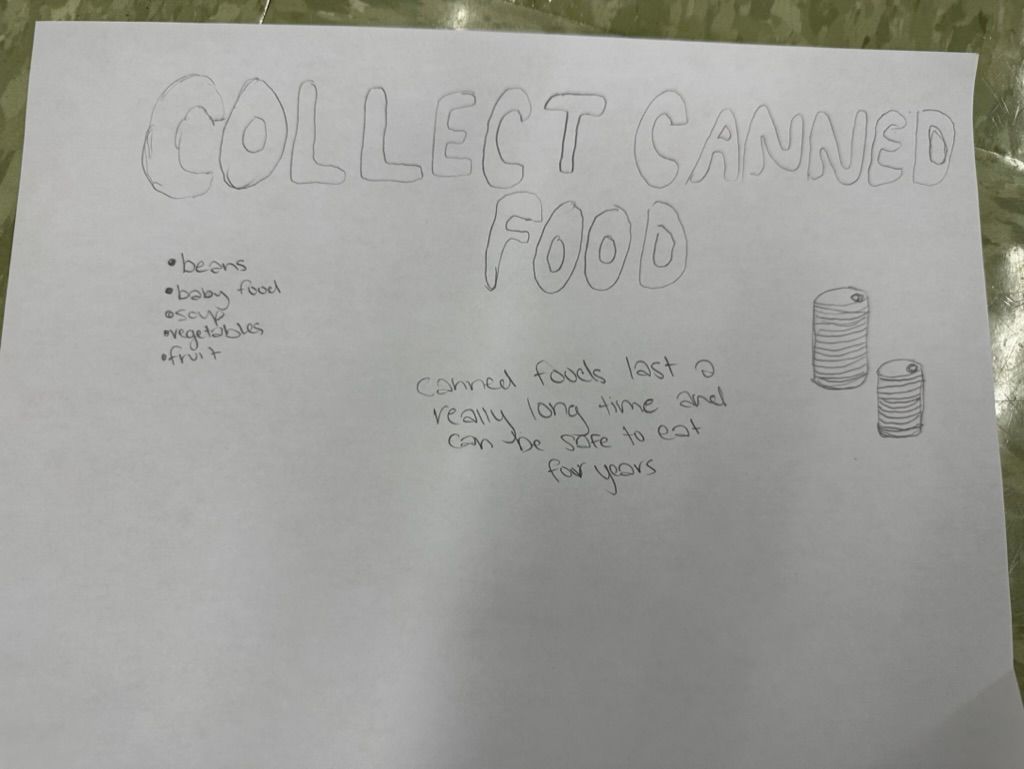 COLLECT CANNED
FOOD
• beans
• baby food
• soup
• vegetables
• fruit
canned foods last a
really long time and
can be safe to eat
for years